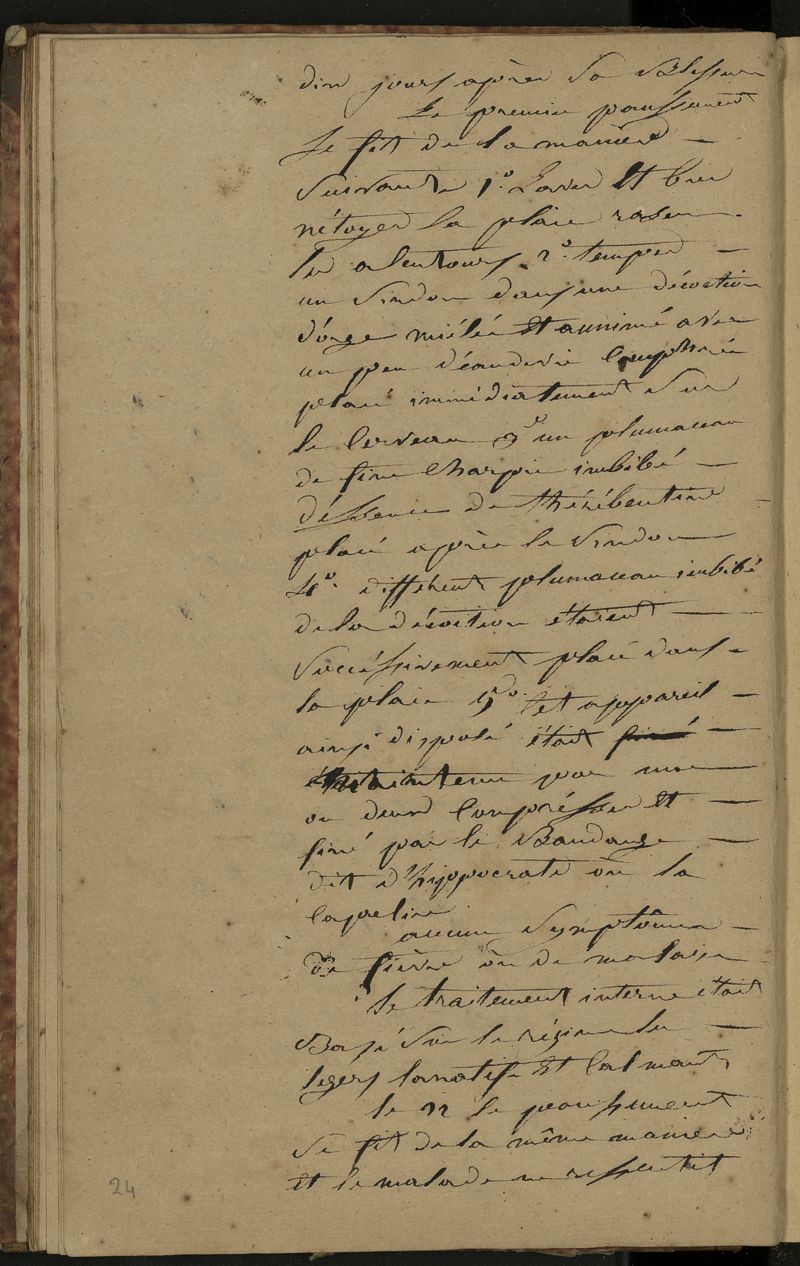 dix jours après sa Blessure
Le premier pansement
se fit de la manière
suivante 1º. Laver Et bien
nétoyer la plaie raser
les alentours. 2º. tremper
un Sindon dans une décoction
d'orge miélée Et annimé avec
un peu d'eaudevie Camphrée
placé immédiatement Sur
le Cerveau 3º un plumaceau
de fine Charpie imbibé
d'éssence de thérébentine
placé après le Sindon
4º. différent plumaceau imbibé
de la décoction étaient
Succéssivement placé dans
la plaie 5º. Cet appareil
ainsi disposé était fixé
maintenu par une
ou deux Compresses Et
fixé par le Bandage
dit d'hyppocrate où la
Capeline
aucun Symptôme
de fièvre où de malaise
le traitement interne était
Basé Sur le régime les
legers laxatifs Et Calmants
le 12 le pansement
Se fit de la même manière
et le malade ne ressentit
24